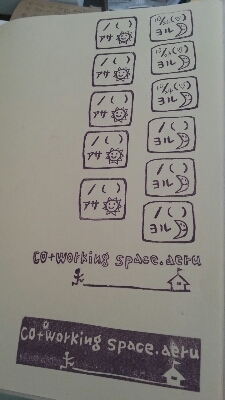 / ( )
アサ
/ ( )
アサ
/ ( )
アサ
/ ( )
アサ
/ ( )
アサ
ヨル
ヨル
ヨル
/ ( )
ヨル
/ ( )
ヨル
/ ( )
ヨル
co+working space.aeru
co+working space.aeru